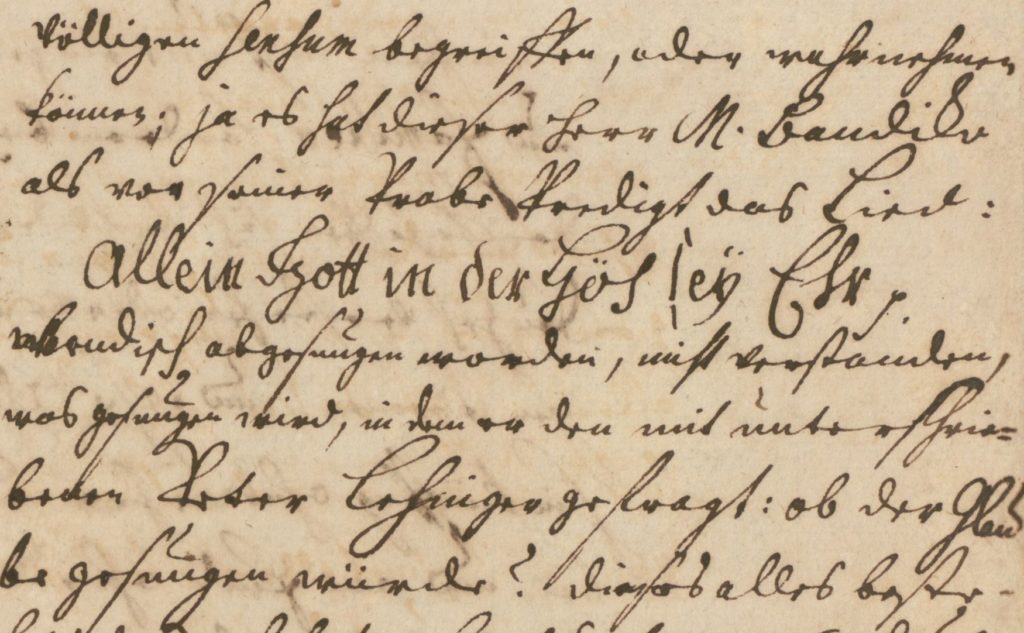 völligen sensum begreiffen, oder wahrnehmen
können; ja es hat dieser Herr M. Baudiko
als vor seiner Probe Predigt das Lied:
Allein Gott in der Höh sey Ehr,
wendisch abgesungen worden, nicht verstanden,
was gesungen wird, in dem er den mit unterschrie=
benen Peter Lehninger gefragt: ob der Glau
be gesungen würde? dieses alles beste-